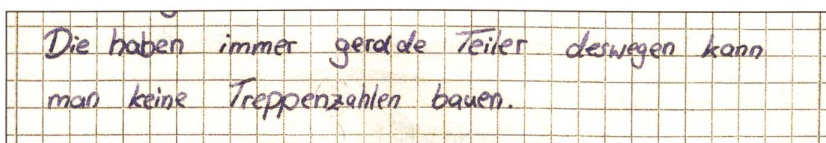 Die haben immer gerade Teiler deswegen kann
man keine Treppenzahlen bauen.